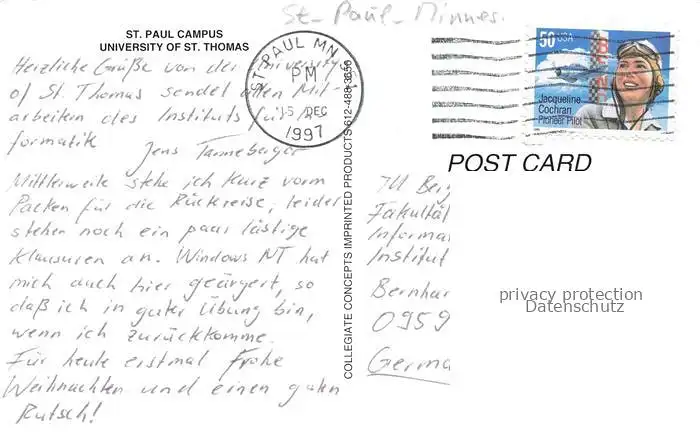 St. Paul. Minnes.
ST. PAUL CAMPUS
UNIVERSITY OF ST. THOMAS
Herzliche Grüße von der University
of St. Thomas sendet allen Mit-
arbeitern des Instituts für In-
formatik Jens Tanneberger
Mittlerweile stehe ich kurz vorm
Packen für die Rückreise, leider
stehen noch ein paar lästige
Klausuren an. Windows NT hat
mich auch hier geärgert, so
daß ich in guter Übung bin,
wenn ich zurückkomme.
Für heute erstmal Frohe
Weihnachten und einen guten
Rutsch!
ST PAUL MN
PM
DEC
1997
COLLEGIATE CONCEPTS IMPRINTED PRODUCTS 612-488-3656
50 USA
Jacqueline
Cochran
Pioneer Pilot
POST CARD
TU Berg
Fakultät
Informa
Institut
Bernhar
0959
Germa
privacy protection
Datenschutz